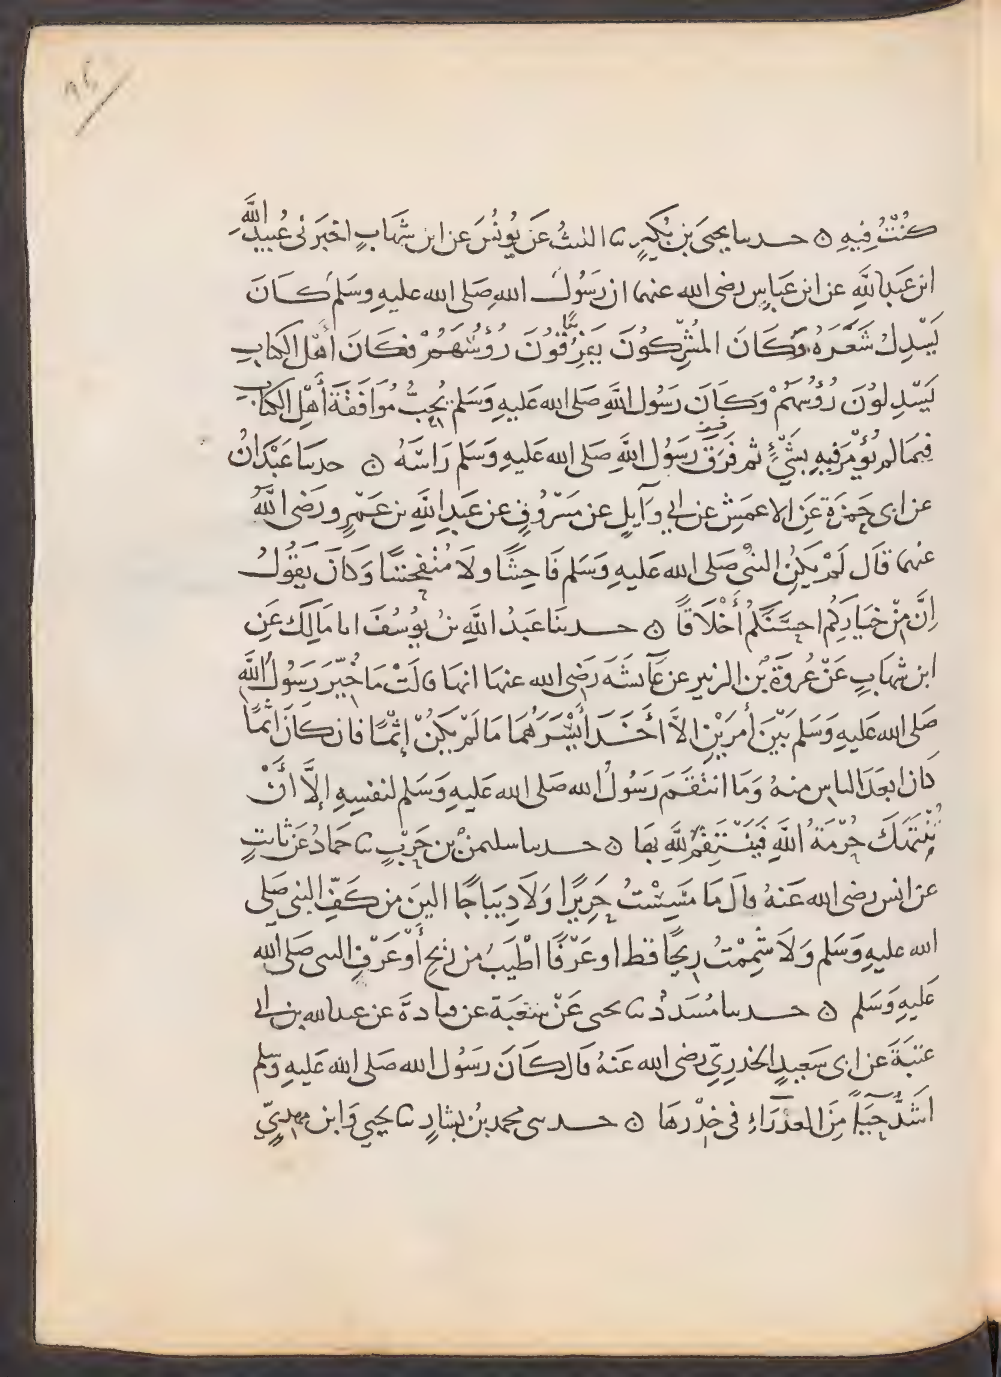 ٩٤
كُنْتُ فِيهِ ۞ حدسا يحيَى بن بُكَيْرٍ سا الليثُ عَن يُونُسَ عن ابن شهَابٍ اخبَرنى عُبيدُ اللَّهِ
ابن عَبدِ اللَّهِ عن ابن عَبَّاسٍ رضى الله عنهما ان رَسُولَ اللهِ صَلى الله عليهِ وَسَلم كَانَ
يَسْدِلُ شَعَرَهُ وَكَانَ المُشْرِكُونَ يَفرِقُونَ رُؤُسَهُمْ فكَانَ أَهْل الكتابِ
يَسْدِلونَ رُؤُسَهُمْ وَكَانَ رَسُول اللَّهِ صَلى الله عَليهِ وَسَلم يُحِبُّ مُوَافَقَةَ أَهْلِ الكتابِ
فِيمَا لم يُؤْمَر فِيهِ بشَيْءٍ ثم فَرَقَ رَسُولُ اللَّهِ صَلى الله عَليهِ وَسَلم رَاسَهُ ۞ حدسا عَبْدَانُ
عن ابى حَمزَةَ عَنِ الاعمَشِ عن ابى وَآيلٍ عن مَسْرُوقٍ عن عَبدِ اللَّهِ بن عَمْرٍو رَضى اللَّهُ
عنهما قَال لَمْ يَكُنِ النبىُّ صَلى الله عَليهِ وَسَلم فَاحِشًا ولَا مُتفحشًا وَكَانَ يَقُولُ
اِنَّ مِنْ خيَارِكُم احسَنَكُمْ أَخْلَاقًا ۞ حدثنا عَبدُ اللَّهِ بنُ يُوسُفَ انا مَالِك عَنِ
ابن شهَابٍ عَنْ عُروَةَ بْنِ الزبير عن عَآئشَةَ رَضِى الله عنهَا انهَا قالَتْ مَا خُيِّرَ رَسُولُ اللَّهِ
صَلى الله عَليهِ وَسَلم بَيْنَ أَمرَيْنِ الاَّ اخَذَ أَيْسَرَهُمَا مَا لَمْ يَكُنْ إِثْمًا فان كَانَ اثمًا
كَانَ ابعَدَ الناسِ منهُ وَمَا انتَقَمَ رَسُولُ الله صَلى الله عَليهِ وَسَلم لنفسِهِ إِلَّا أَنْ
تُنْتَهَكَ حُرْمَةُ اللَّهِ فَيَنْتَقِمُ للَّهِ بهَا ۞ حدسا سليمنُ بن حَرْبٍ سا حمادُ عَن ثابتٍ
عن انس رضى الله عَنهُ قالَ مَا مَسِسْتُ حَرِيرًا وَلَا دِيبَاجًا اليَنَ من كَفِّ النبى صَلى
الله عليهِ وَسَلم وَلَا شَمِمْتُ رِيحًا قط او عَرْفًا اطْيَبُ من رِيْحِ أَوْ عَرْفِ النبى صَلى الله
عَليهِ وَسَلم ۞ حدسا مُسَدَّدُ سا يحيى عَنْ شعبَةَ عن قتادةَ عن عبد الله بن ابى
عتبَةَ عن ابى سَعيدٍ الخدرِيّ رضى الله عَنهُ قَال كَانَ رَسُول الله صَلى الله عَليهِ وَسلم
اشدَّ حَيَآءً مِنَ العذرَآءِ فى خِدْرهَا ۞ حدثنى محمد بنُ بشارٍ سا يحيى وَابن مهدِيٍّ